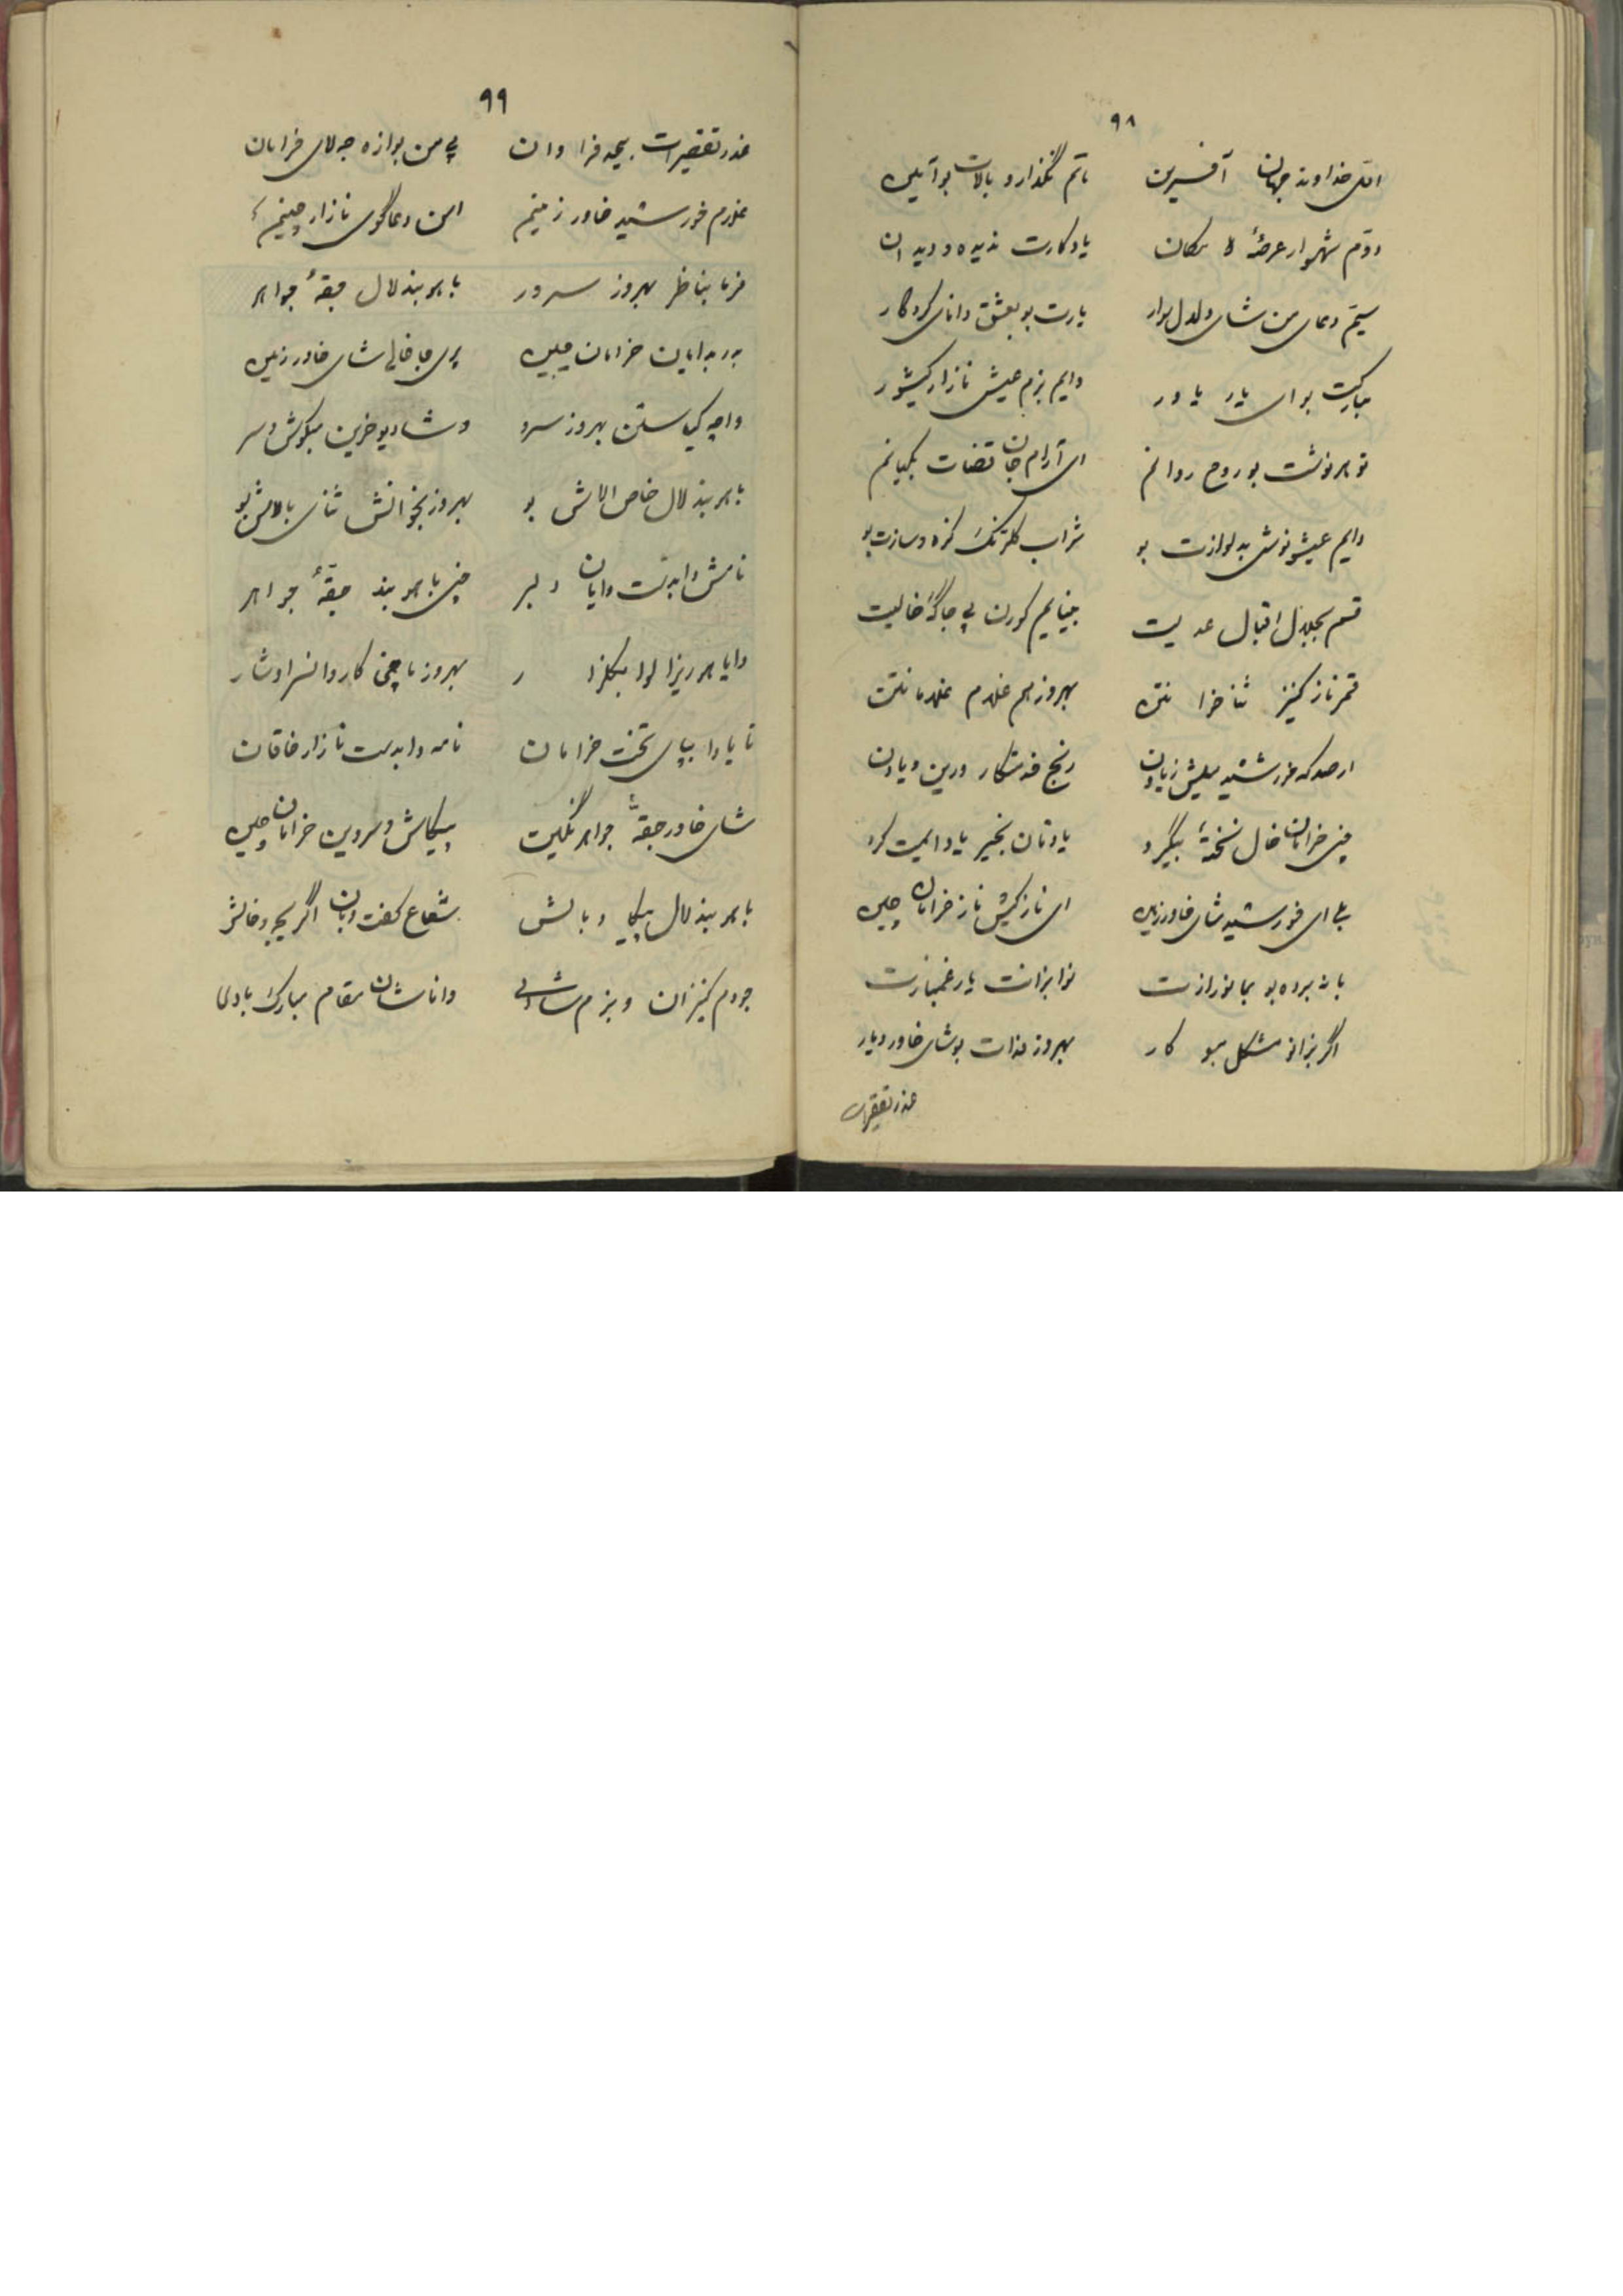 ۹۸
اول خداوند جهان آفرین تاتم نگذارو بالات بو آیین
دوّم شهسوار عرصهٔ لا مکان یادکارت ندیده و دیدان
سیّم دعای من شای دلدل سوار یارت بو بعشق دانای کردگار
مبارکت بو ای یار یاور دایم بزم عیش نازار کیشور
تو هر ونشت بو روح روانم ای آرام جان قضات بگیانم
دایم عیشو نوش بدلوازت بو شراب گلرنگ مزه و سازت بو
قسم بجلال اقبال عدلیت بینایم کورن پی جاگه خالیت
قمرناز کنیز ثناخوا نتن بهروز هم غلام غلامانتن
ار صد که خورشید میلش زیادن رنج خدمتکار ورین و یادن
چنی خرامان خال نسخهٔ بگیرد یادتان بخیر یاد ایمیت کرد
بلی ای خورشید شای خاور زمین ای نازکیش ناز خرامان چین
با نه پرده بو بمانو رازت نوا بزانت یار غمبازت
اگر بزانو مشکل مبو کار بهروز فدات بو شای خاور دیار
عذر تقصیرات
۹۹
عذر تقصیرات بیحد فراوان پی من بوازه جه لای خرامان
غلام خورشید خاور زمینم امن دعاگوی نازار چینم
فرما بناظر بهروز سرور باهر بند لال جقهٔ جواهر
بدر بدایان خرامان چین پری جا خالی شای خاور زمین
واچه کی ستن بهروز سرو و شادیو خرین میکوش و سر
باهر بند لال خاص الاش بو بهروز بخوانش ثنای بالاش بو
نامش دا بدست دایان دلبر چنی باهر بند جقهٔ جواهر
دایا هر ریزا لولا میکلزا ر بهروز ما چنی کاروانسرا وشار
تا یاوا بپای تخت خرامان نامه دا بدست نازار خاقان
شای خاور جقهٔ جواهر نگیت پیکاش و سروین خرامان چین
باهر بند لال پیکا و بالش شعاع کفت و بان اگریجه و خالش
جودم کنیزان و بزم شادی واناشان مقام مبارک بادی